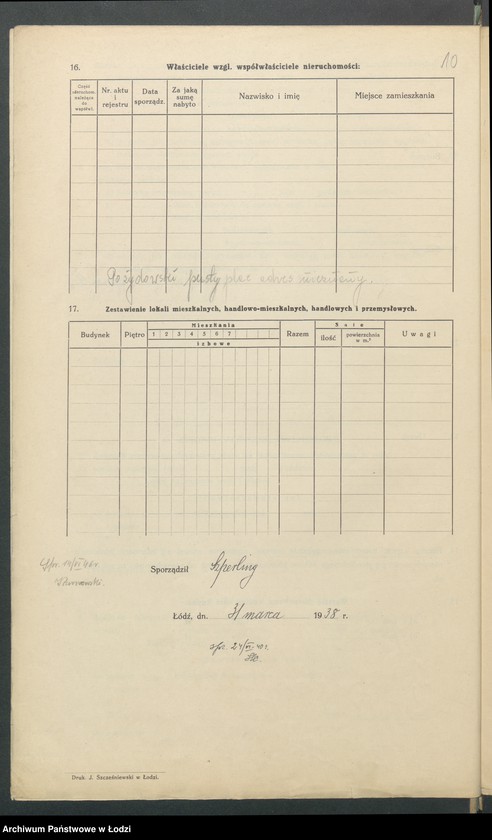 10
16. Właściciele wzgl. współwłaściciele nieruchomości:
Część nieruchom. należąca do współwł.
Nr. aktu i rejestru
Data sporządz.
Za jaką sumę nabyto
Nazwisko i imię
Miejsce zamieszkania
Pożydowski pusty plac adres nieznany.
17. Zestawienie lokali mieszkalnych, handlowo-mieszkalnych, handlowych i przemysłowych.
Budynek
Piętro
Mieszkania
1 2 3 4 5 6 7
izbowe
Razem
Sale
ilość
powierzchnia w m.²
Uwagi
Spr.
Sporządził Szperling
Łódź, dn. 31 marca 1938 r.
spr.
Druk. J. Szcześniewski w Łodzi.
Archiwum Państwowe w Łodzi